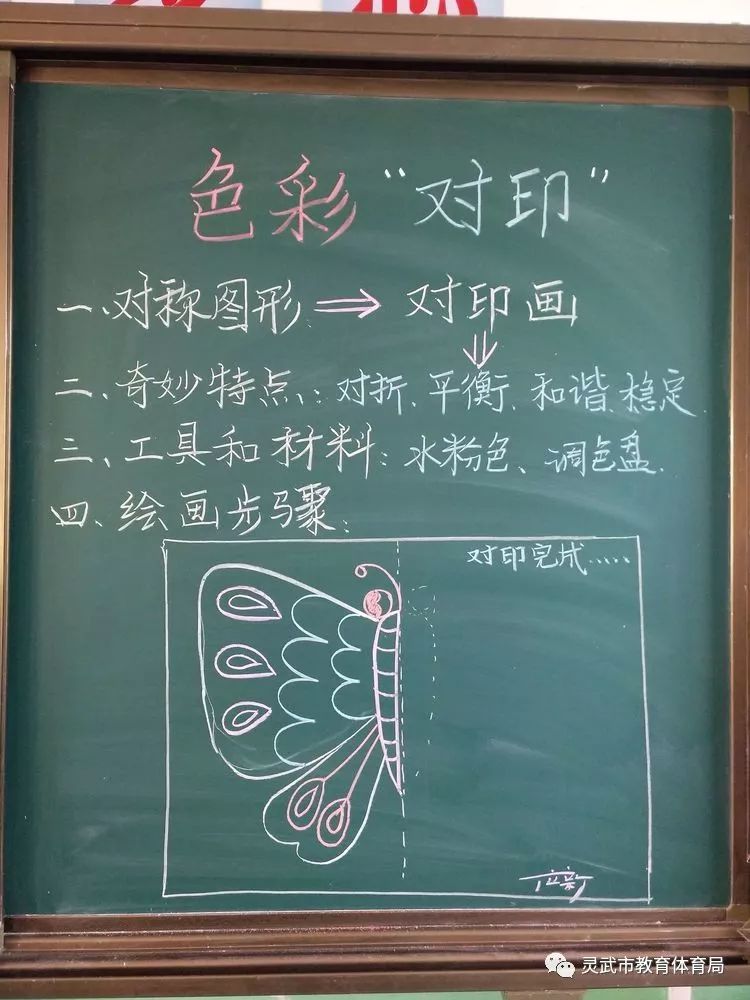 色彩“对印”
一、对称图形 ⇒ 对印画
⇓
二、奇妙特点：对折、平衡、和谐、稳定.
三、工具和材料：水粉色、调色盘.
四、绘画步骤：
对印完成……
灵武市教育体育局